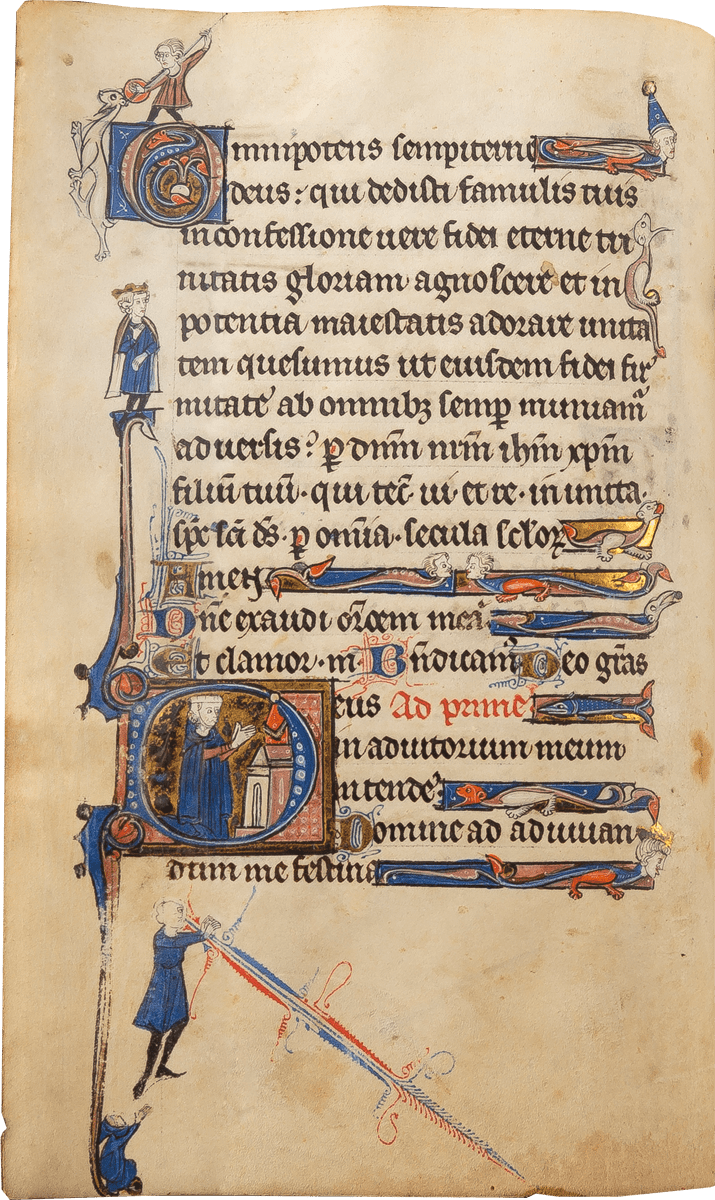 Omnipotens sempiterne
deus: qui dedisti famulis tuis
in confessione uere fidei eterne tri
nitatis gloriam agnoscere et in
potentia maiestatis adorare unita
tem quesumus ut eiusdem fidei fir
mitate ab omnibꝫ semꝑ muniam᷑
aduersis? ꝑ dn̄m nr̄m ih̄m xp̄m
filiū tuū · qui tec̄ · ui · et re · in unita ·
sp̄c sc̄i ds̄ · ꝑ om̄ia · secula sc̄loꝝ
Amen
Dn̄e exaudi or̄oem meā
Et clamor · m · Bn̄dicam᷒ Deo gr̄as
Deus Ad prime
in adiutorium meum
intende?
Domine ad adiuuan
dum me festina